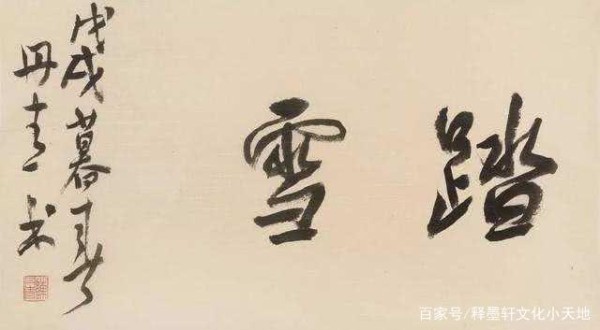 踏雪
戊戌暮春
百家号/释墨轩文化小天地